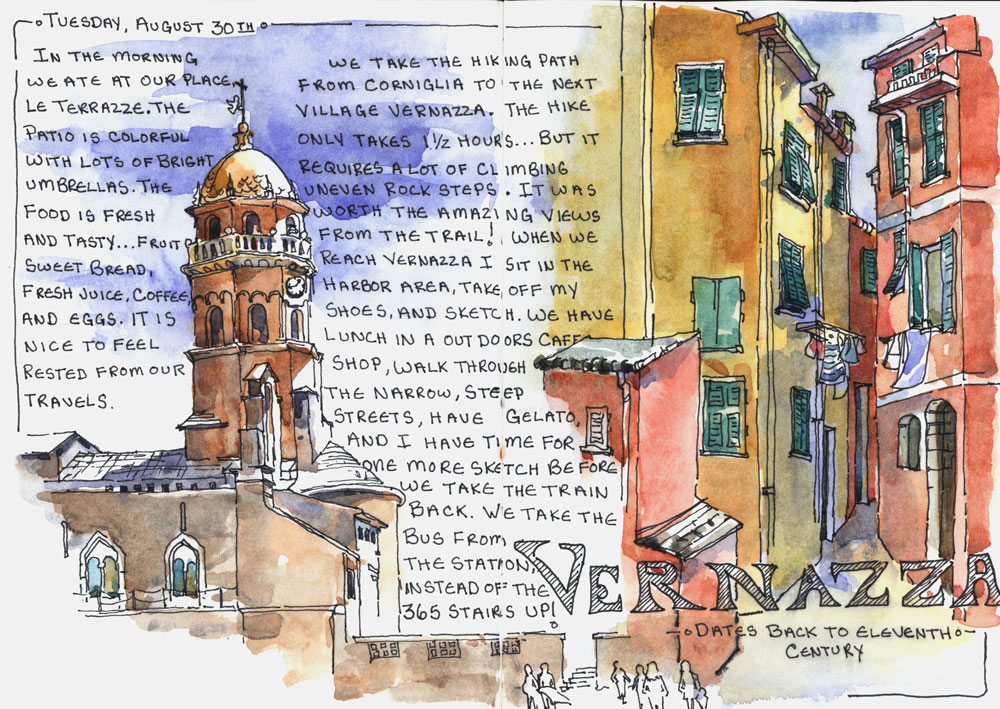 TUESDAY, AUGUST 30TH
IN THE MORNING
WE ATE AT OUR PLACE,
LE TERRAZZE. THE
PATIO IS COLORFUL
WITH LOTS OF BRIGHT
UMBRELLAS. THE
FOOD IS FRESH
AND TASTY... FRUIT
SWEET BREAD,
FRESH JUICE, COFFEE,
AND EGGS. IT IS
NICE TO FEEL
RESTED FROM OUR
TRAVELS.
WE TAKE THE HIKING PATH
FROM CORNIGLIA TO THE NEXT
VILLAGE VERNAZZA. THE HIKE
ONLY TAKES 1 1/2 HOURS... BUT IT
REQUIRES A LOT OF CLIMBING
UNEVEN ROCK STEPS. IT WAS
WORTH THE AMAZING VIEWS
FROM THE TRAIL! WHEN WE
REACH VERNAZZA I SIT IN THE
HARBOR AREA, TAKE OFF MY
SHOES, AND SKETCH. WE HAVE
LUNCH IN A OUTDOORS CAFE
SHOP, WALK THROUGH
THE NARROW, STEEP
STREETS, HAVE GELATO,
AND I HAVE TIME FOR
ONE MORE SKETCH BEFORE
WE TAKE THE TRAIN
BACK. WE TAKE THE
BUS FROM
THE STATION
INSTEAD OF THE
365 STAIRS UP!
VERNAZZA
DATES BACK TO ELEVENTH
CENTURY